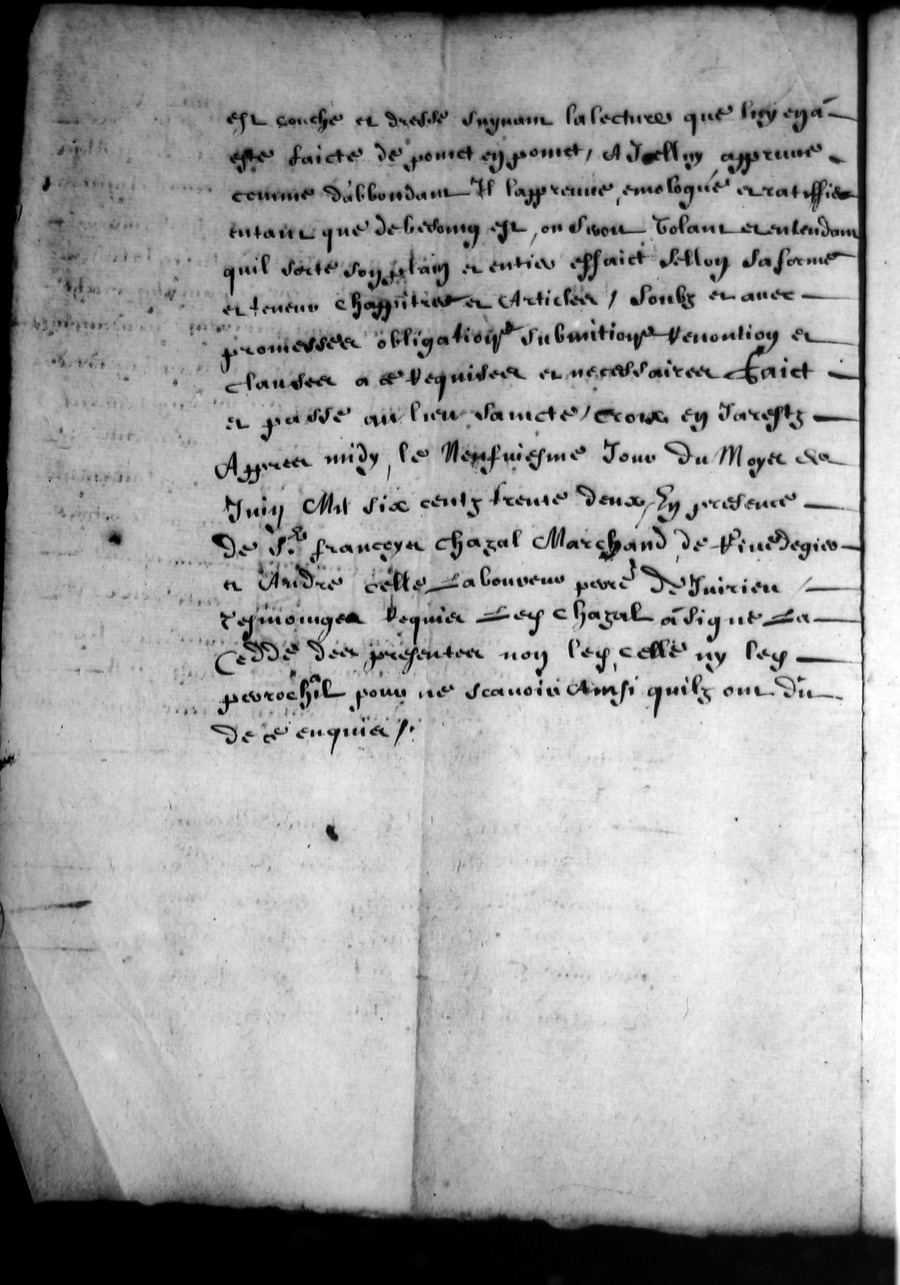 est couche et dresse suyvant la lecture que luy en a
este faicte de poinct en poinct, A Icelluy appreuve
comme dabbondant Il lappreuve, emologue et rattiffie
entant que de besoing est, ou seroit Volant et entendant
quil sorte son plain et entier effaict sellon sa forme
et teneur chappitres et Articles / soubz et avec
promesses obligations submitions Renontion et
clauses a ce Requises et necessaires faict
et passe au lieu saincte / Croix en Jarestz
Appres midy, le Neufviesme Jour du Moys de
Juin Mil six centz trente deux, En presence
de Sr françoys chazal Marchand de Rivedegier
et André celle Laboureur perre de
tesmoings Requis Led chazal a signe La
Cedde des presentes non led celle ny led
perrochl pour ne scavoir Ainsi quilz ont dit
de ce enquis /.